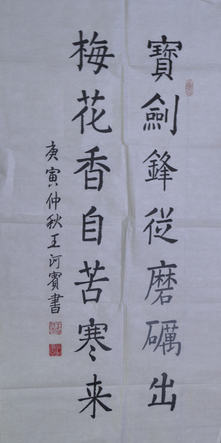 寶劍鋒從磨礪出
梅花香自苦寒来
庚寅仲秋王河賓書